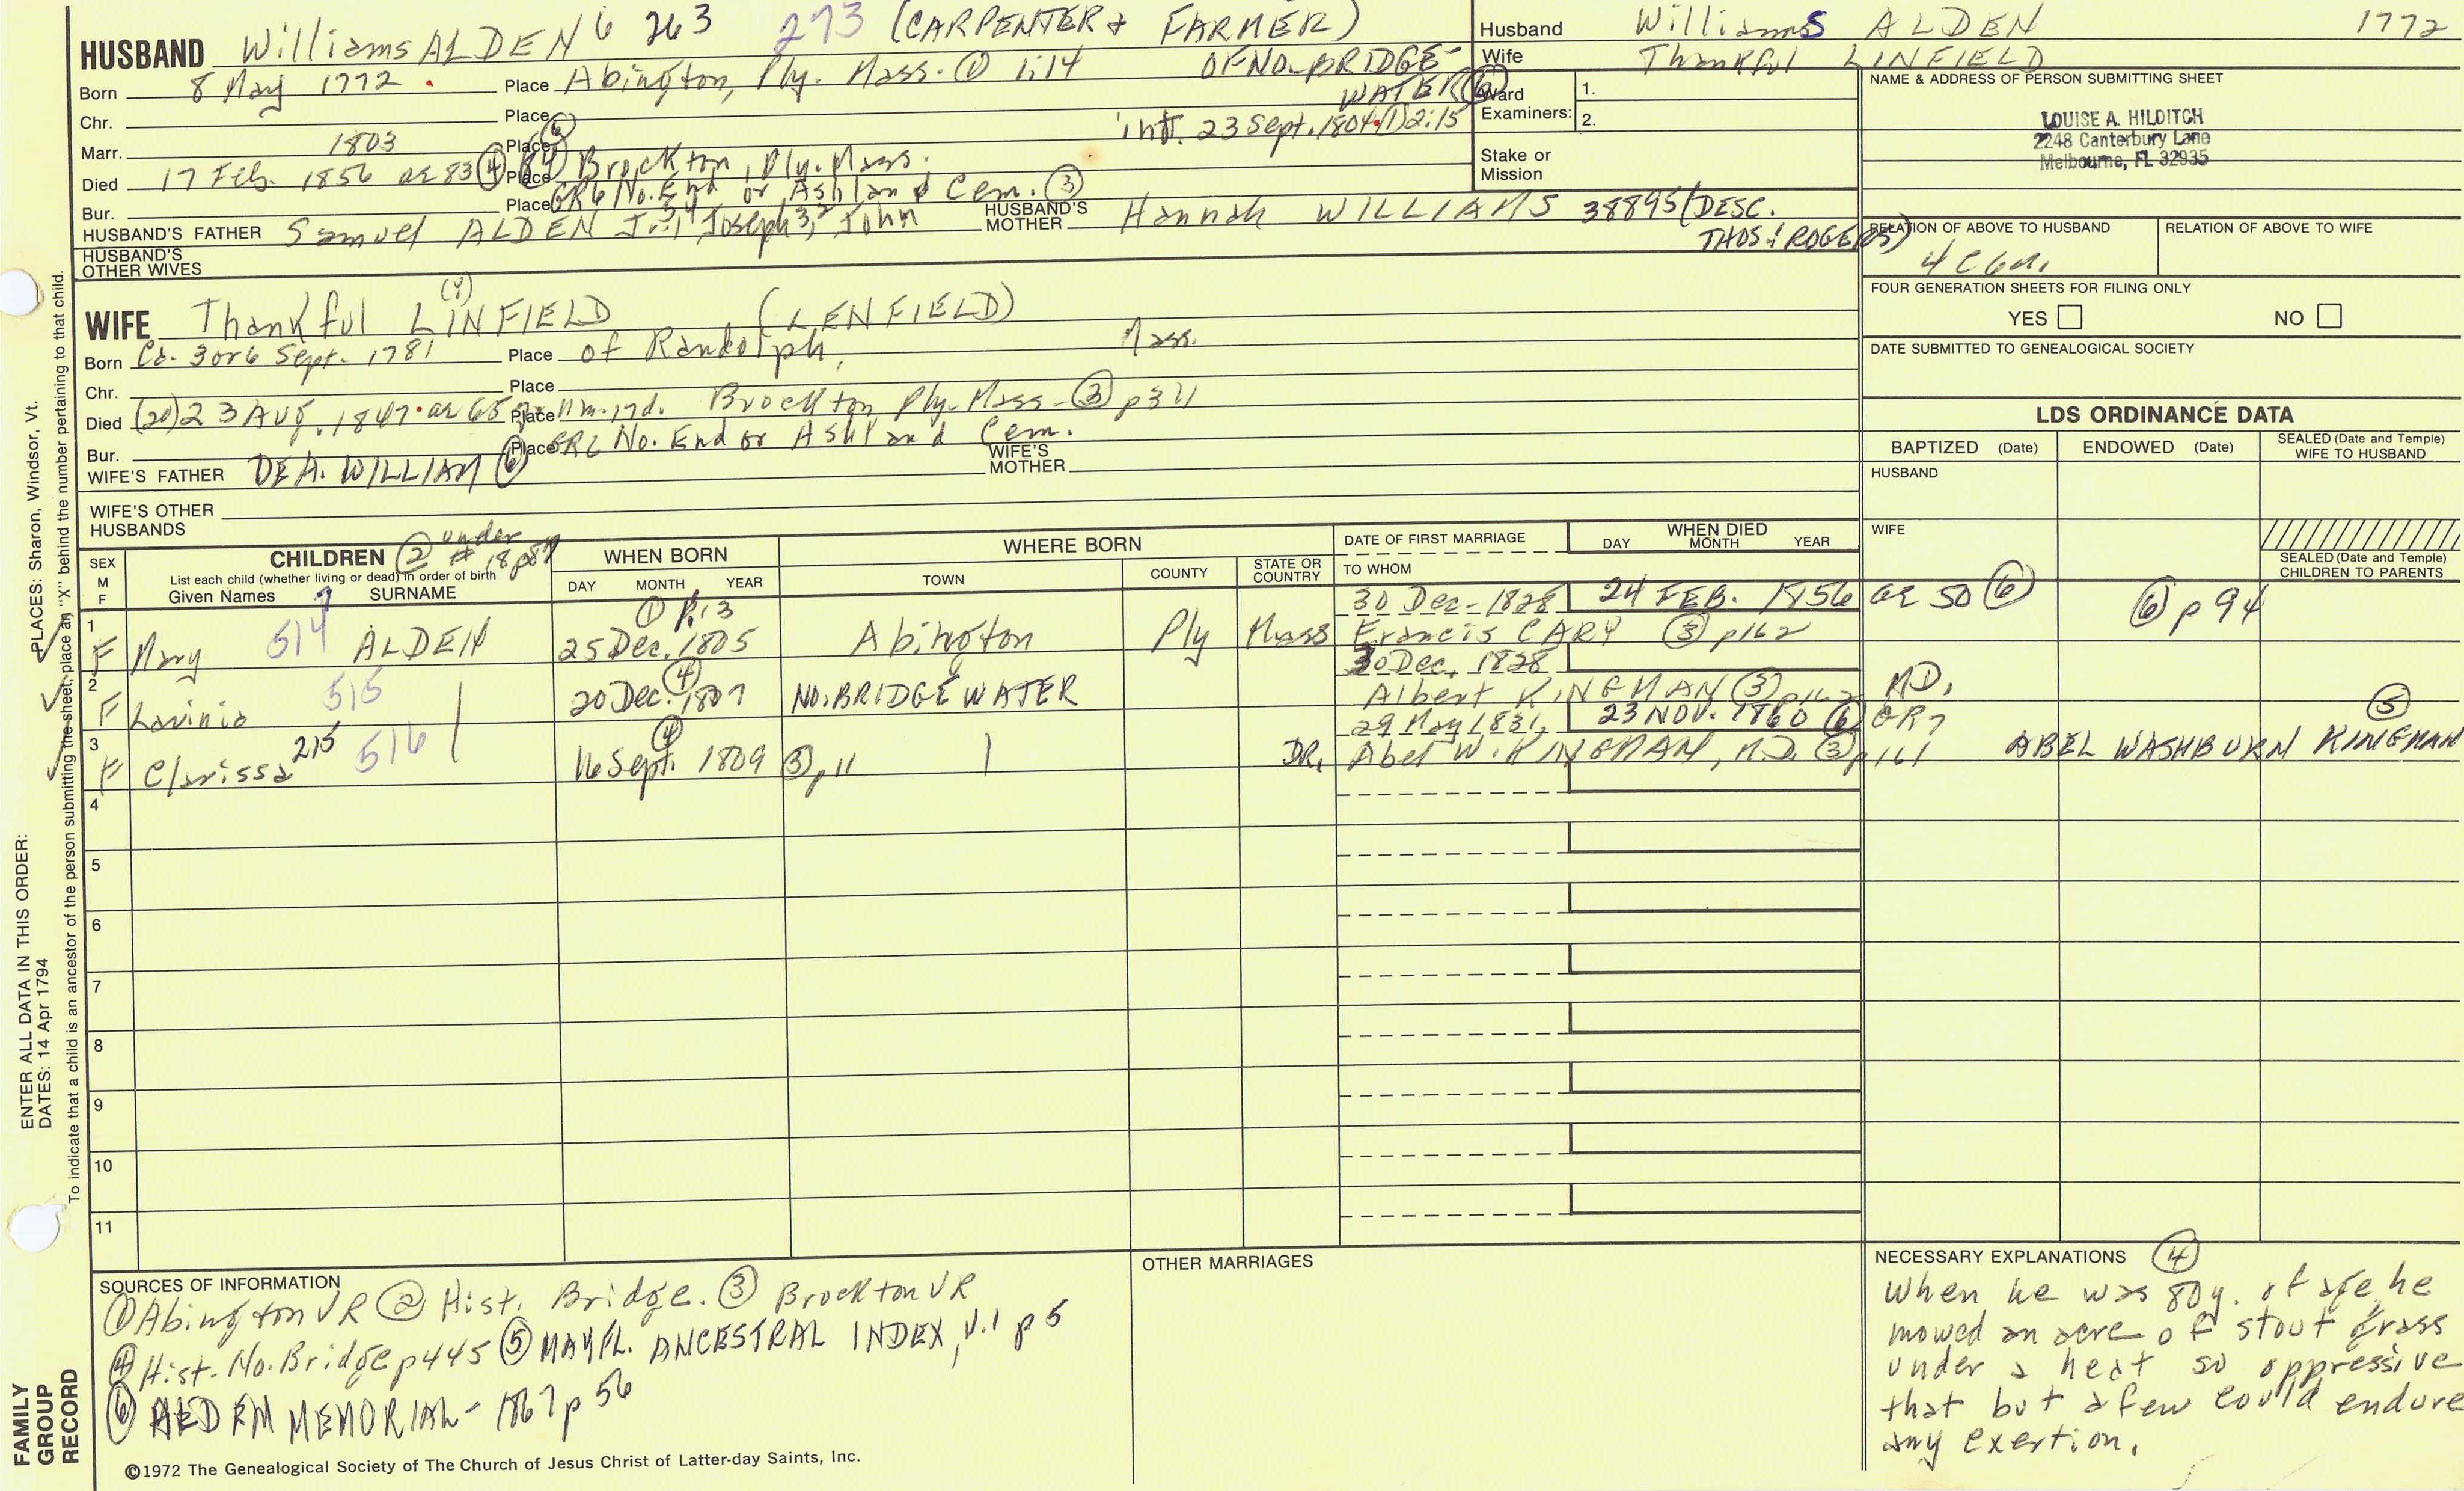 HUSBAND Williams ALDEN 6 263 273 (CARPENTER & FARMER)
OF NO. BRIDGE-
WATER (6)
Born 8 May 1772 Place Abington, Ply. Mass. ① 1:14
Chr. Place
int. 23 Sept. 1804 (1) 2:15
Marr. 1803 ⑥ Place
Died 17 Feb. 1856 ae 83 ④ 84 Place Brockton, Ply. Mass.
Bur. Place GR6 No. End or Ashland Cem. ③
HUSBAND'S FATHER Samuel ALDEN Jr. Joseph 3, 2 John
HUSBAND'S MOTHER Hannah WILLIAMS 38895 (DESC.
THOS. ROGERS)
HUSBAND'S OTHER WIVES
Husband Williams ALDEN 1772
Wife Thankful LINFIELD
Ward Examiners: 1.
2.
Stake or Mission
NAME & ADDRESS OF PERSON SUBMITTING SHEET
LOUISE A. HILDITCH
2248 Canterbury Lane
Melbourne, FL 32935
RELATION OF ABOVE TO HUSBAND
4C6R
RELATION OF ABOVE TO WIFE
FOUR GENERATION SHEETS FOR FILING ONLY
YES NO
DATE SUBMITTED TO GENEALOGICAL SOCIETY
(Y)
WIFE Thankful LINFIELD (LENFIELD)
Born Ca. 3 or 6 Sept. 1781 Place of Randolph, Mass.
Chr. Place
Died (20) 23 Aug. 1847 ae 65 y 11m. 17d. Place Brockton Ply. Mass. ③ p311
Bur. Place GR6 No. End or Ashland Cem.
WIFE'S FATHER DEA. WILLIAM ⑥
WIFE'S MOTHER
WIFE'S OTHER HUSBANDS
LDS ORDINANCE DATA
BAPTIZED (Date) ENDOWED (Date) SEALED (Date and Temple) WIFE TO HUSBAND
HUSBAND
WIFE
SEALED (Date and Temple) CHILDREN TO PARENTS
SEX M F
CHILDREN ② under # 18 p87
List each child (whether living or dead) in order of birth
Given Names SURNAME
WHEN BORN
DAY MONTH YEAR
WHERE BORN
TOWN COUNTY STATE OR COUNTRY
DATE OF FIRST MARRIAGE
TO WHOM
WHEN DIED
DAY MONTH YEAR
1 F Mary 514 7 ALDEN ① 1:13 25 Dec. 1805 Abington Ply Mass 30 Dec. 1828 24 FEB. 1856 ae 50 ⑥ ⑥ p94
Francis CARY ③ p162
2 F Lavinia 515 ④ 20 Dec. 1807 NO. BRIDGEWATER 30 Dec. 1828
Albert KINGMAN ③ p162
3 F Clarissa 215 516 ④ 16 Sept. 1809 ③ p11 29 May 1831, 23 NOV. 1860 ⑥ OR 7
DR. Abel W. KINGMAN, M.D. ③ p161 M.D. ⑤ ABEL WASHBURN KINGMAN
4
5
6
7
8
9
10
11
SOURCES OF INFORMATION
① Abington VR ② Hist. Bridge. ③ Brockton VR
④ Hist. No. Bridge p445 ⑤ MAYFL. ANCESTRAL INDEX, V.1 p5
⑥ ALDEN MEMORIAL - 1867 p 56
OTHER MARRIAGES
NECESSARY EXPLANATIONS ④
When he was 80y. of age he
mowed an acre of stout grass
under a heat so oppressive
that but a few could endure
any exertion.
©1972 The Genealogical Society of The Church of Jesus Christ of Latter-day Saints, Inc.
ENTER ALL DATA IN THIS ORDER:
DATES: 14 Apr 1794
PLACES: Sharon, Windsor, Vt.
To indicate that a child is an ancestor of the person submitting the sheet, place an "X" behind the number pertaining to that child.
FAMILY
GROUP
RECORD